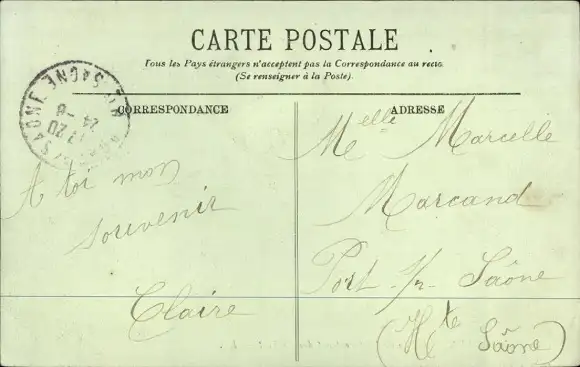 CARTE POSTALE
Tous les Pays étrangers n'acceptent pas la Correspondance au recto
(Se renseigner à la Poste).
CORRESPONDANCE
A toi mon
souvenir
Claire
ADRESSE
Melle Marcelle
Marcand
Port s/r Saône
(Hte Saône)
SAONE
24 - 8